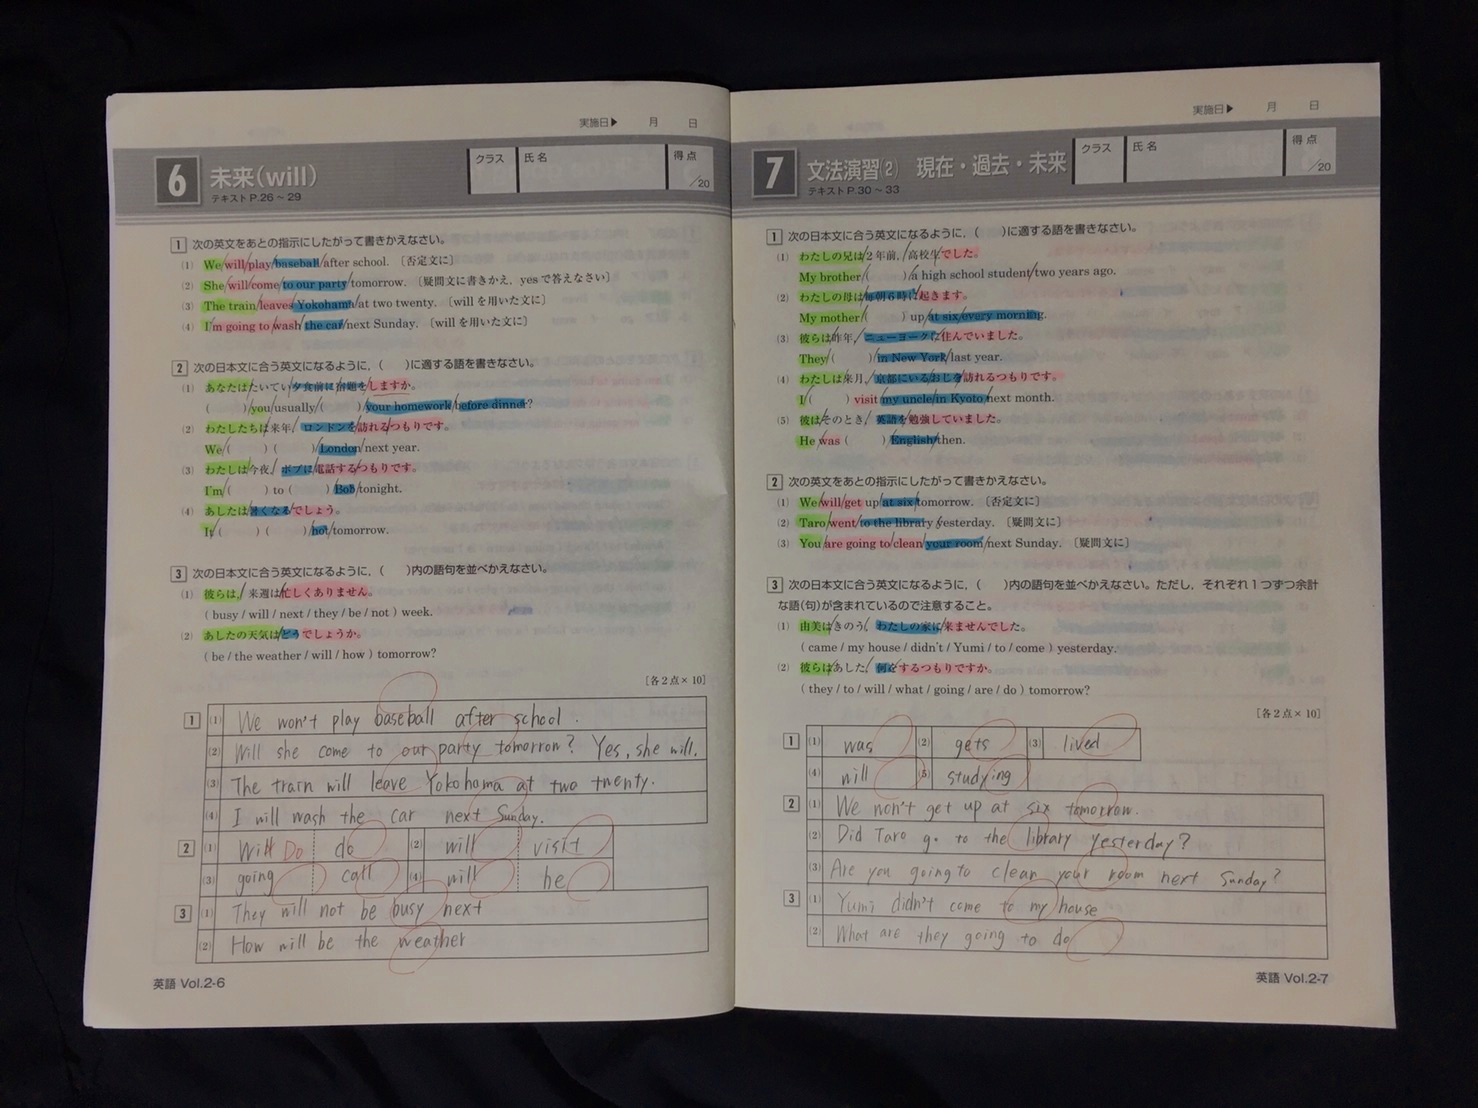 実施日▶ 月 日
6 未来(will)
テキストP.26～29
クラス 氏名 得点 /20
1 次の英文をあとの指示にしたがって書きかえなさい。
(1) We/will/play/baseball/after school. 〔否定文に〕
(2) She/will/come/to our party/tomorrow. 〔疑問文に書きかえ，yesで答えなさい〕
(3) The train/leaves/Yokohama/at two twenty. 〔willを用いた文に〕
(4) I'm going to/wash/the car/next Sunday. 〔willを用いた文に〕
2 次の日本文に合う英文になるように，( )に適する語を書きなさい。
(1) あなたは/たいてい/夕食前に/宿題を/しますか。
( )/you/usually/( )/your homework/before dinner?
(2) わたしたちは/来年，/ロンドンを/訪れる/つもりです。
We/( ) ( )/London/next year.
(3) わたしは/今夜，/ボブに/電話する/つもりです。
I'm/( ) to ( )/Bob/tonight.
(4) あしたは/暑くなる/でしょう。
It/( ) ( )/hot/tomorrow.
3 次の日本文に合う英文になるように，( )内の語句を並べかえなさい。
(1) 彼らは，/来週は/忙しくありません。
( busy / will / next / they / be / not ) week.
(2) あしたの天気は/どう/でしょうか。
( be / the weather / will / how ) tomorrow?
[各2点×10]
1 (1) We won't play baseball after school.
(2) Will she come to our party tomorrow? Yes, she will.
(3) The train will leave Yokohama at two twenty.
(4) I will wash the car next Sunday.
2 (1) Will Do do (2) will visit
(3) going call (4) will be
3 (1) They will not be busy next
(2) How will be the weather
英語 Vol.2-6
実施日▶ 月 日
7 文法演習(2) 現在・過去・未来
テキストP.30～33
クラス 氏名 得点 /20
1 次の日本文に合う英文になるように，( )に適する語を書きなさい。
(1) わたしの兄は/2年前，/高校生/でした。
My brother/( )/a high school student/two years ago.
(2) わたしの母は/毎朝6時に/起きます。
My mother/( ) up/at six/every morning.
(3) 彼らは/昨年，/ニューヨークに/住んでいました。
They/( )/in New York/last year.
(4) わたしは/来月，/京都にいるおじを/訪れるつもりです。
I/( ) visit my uncle/in Kyoto/next month.
(5) 彼は/そのとき，/英語を/勉強していました。
He was ( )/English/then.
2 次の英文をあとの指示にしたがって書きかえなさい。
(1) We/will/get up/at six/tomorrow. 〔否定文に〕
(2) Taro/went/to the library/yesterday. 〔疑問文に〕
(3) You/are going to/clean/your room/next Sunday. 〔疑問文に〕
3 次の日本文に合う英文になるように，( )内の語句を並べかえなさい。ただし，それぞれ1つずつ余計
な語(句)が含まれているので注意すること。
(1) 由美は/きのう，/わたしの家に/来ませんでした。
( came / my house / didn't / Yumi / to / come ) yesterday.
(2) 彼らは/あした，/何を/するつもりですか。
( they / to / will / what / going / are / do ) tomorrow?
[各2点×10]
1 (1) was (2) gets (3) lived
(4) will (5) studying
2 (1) We won't get up at six tomorrow.
(2) Did Taro go to the library yesterday?
(3) Are you going to clean your room next Sunday?
3 (1) Yumi didn't come to my house
(2) What are they going to do
英語 Vol.2-7